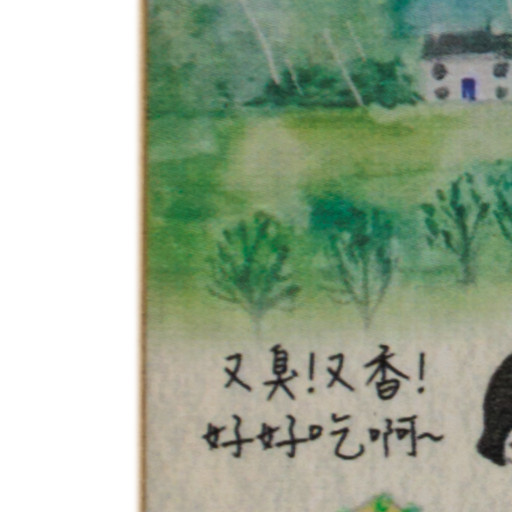 又臭!又香!
好好吃啊~